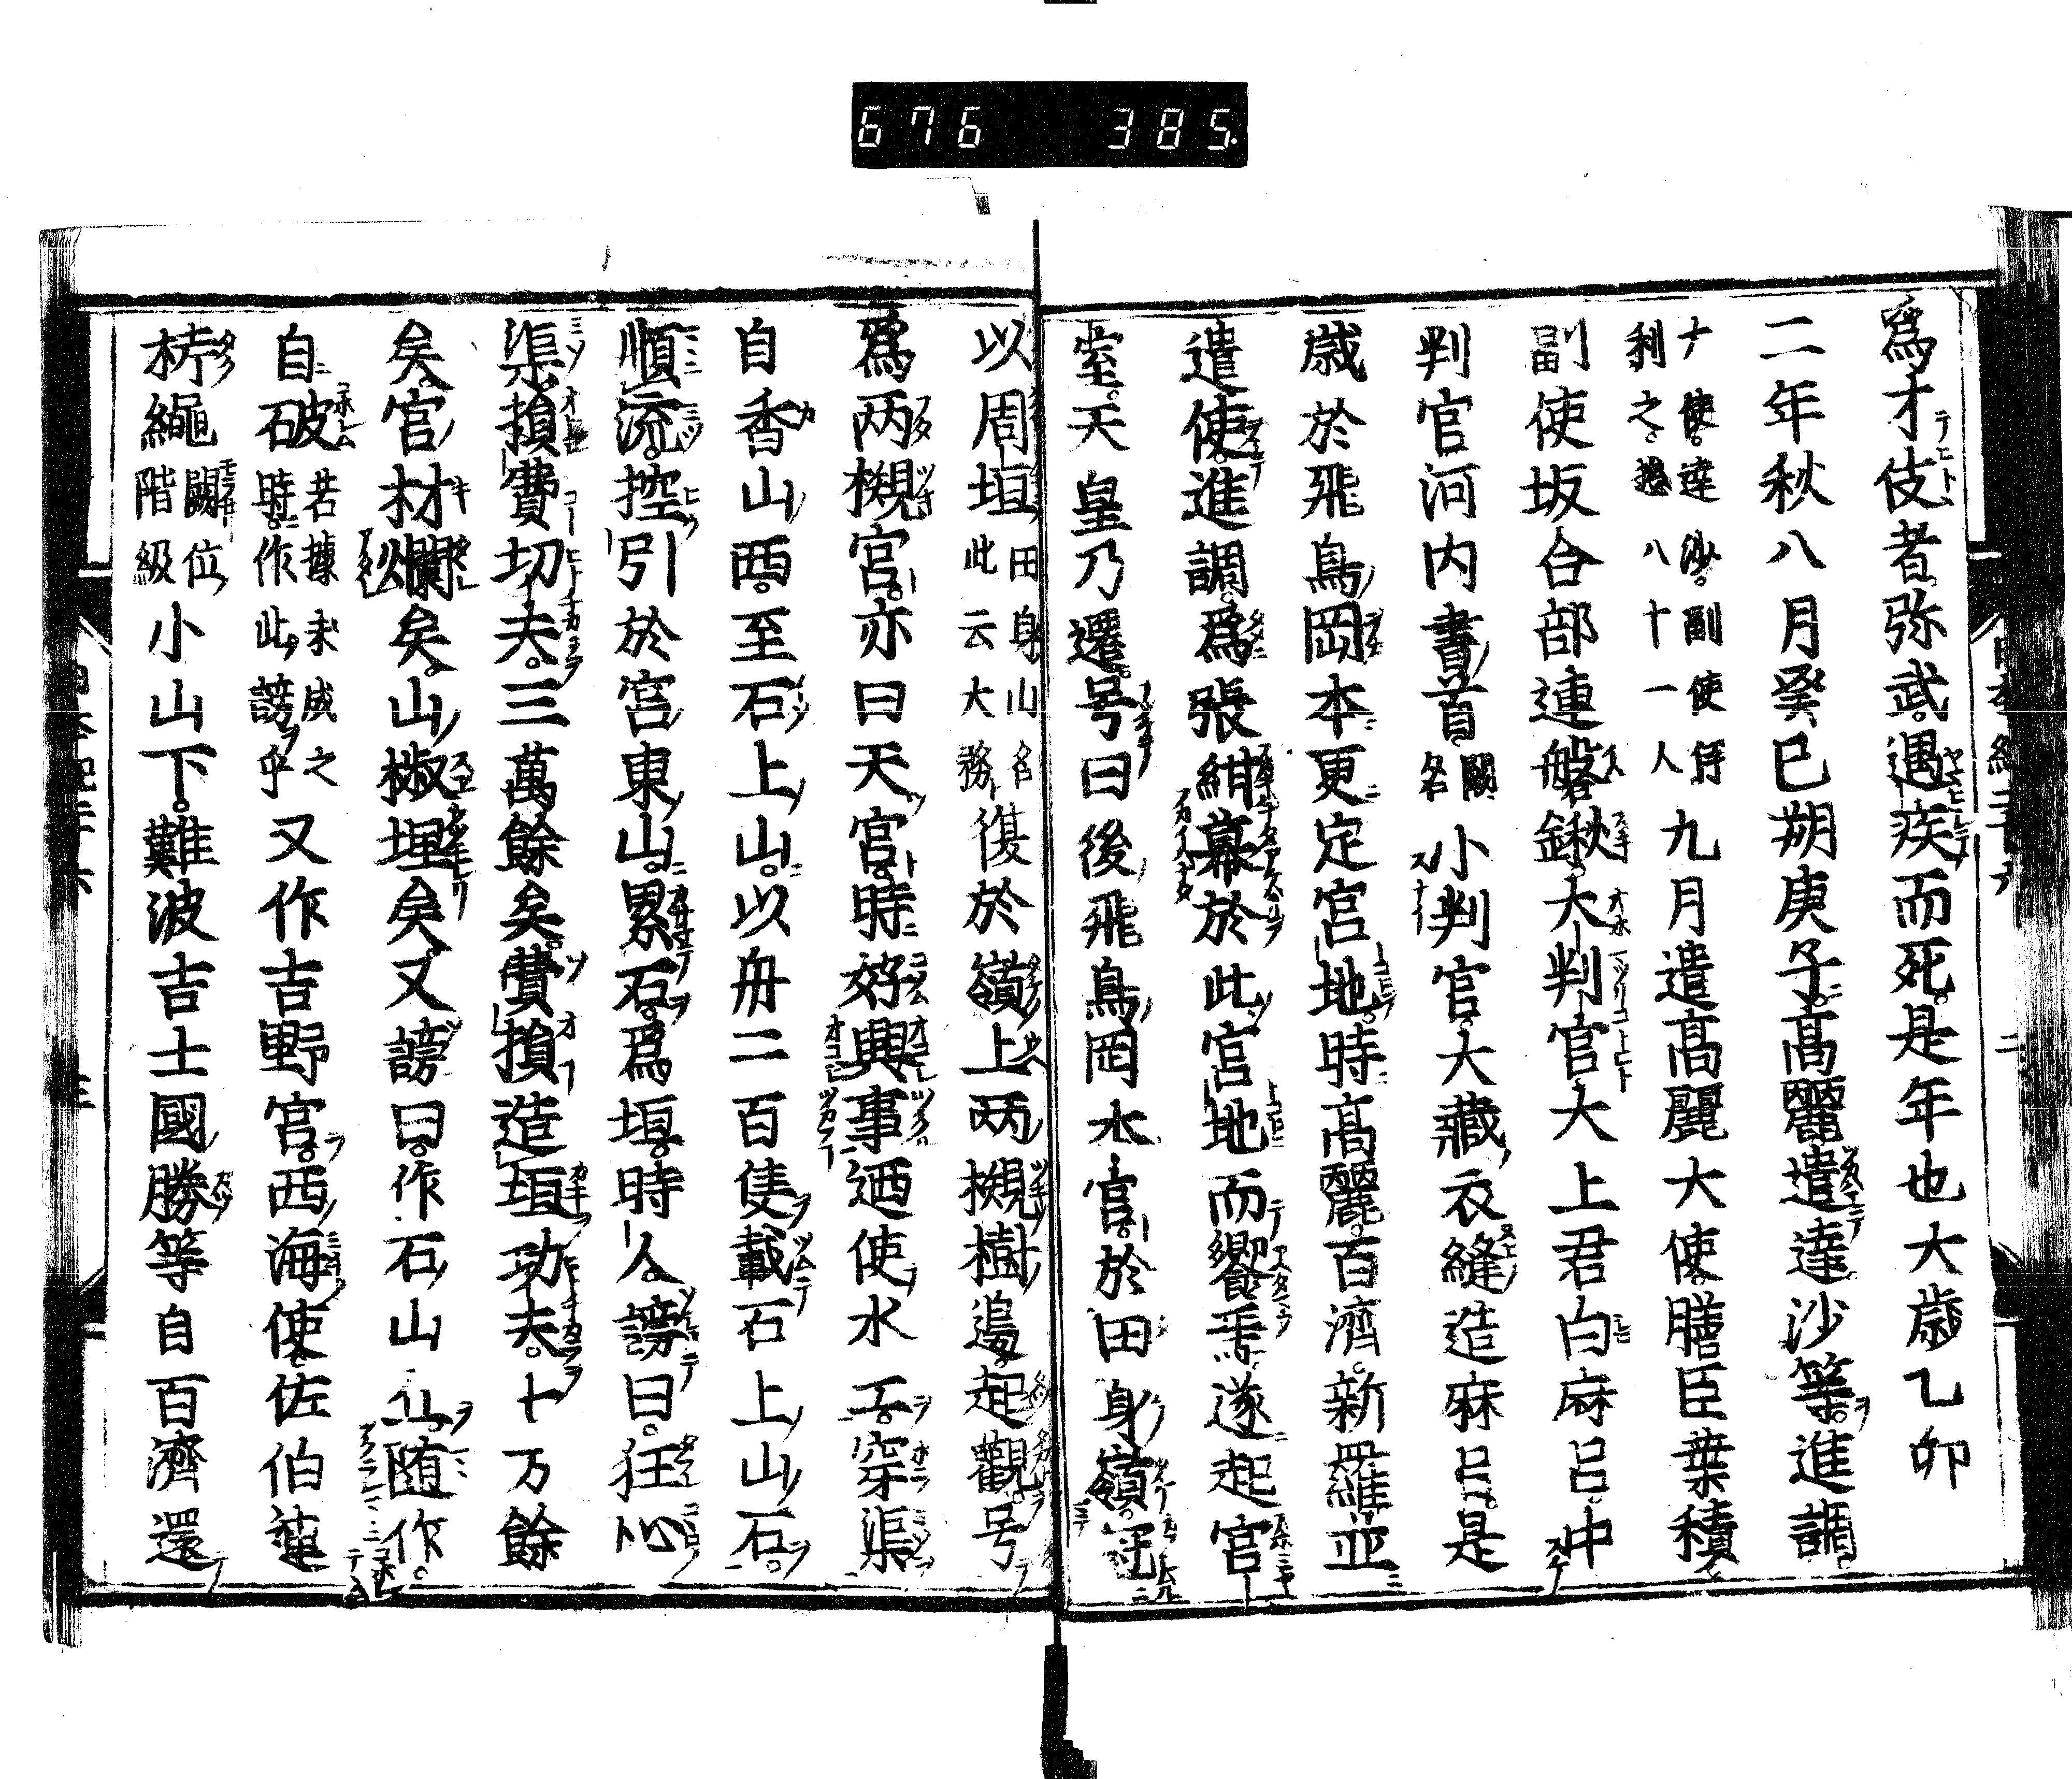 676 385
爲才伎者弥武遇疾而死是年也大歲乙卯
二年秋八月癸巳朔庚子髙麗遣達沙等進調
大使達沙副使伊
利之惣八十一人九月遣髙麗大使膳臣葉積
副使坂合部連磐鍬大判官大上君白麻呂中
判官河内書首闕名小判官大藏衣縫造麻呂是
歲於飛鳥岡本更定宮地時髙麗百濟新羅並
遣使進調爲張紺幕於此宮地而饗焉遂起宮
室天皇乃遷号曰後飛鳥岡本宮於田身嶺冠
以周垣田身山名此云大務復於嶺上两槻樹邊起觀号
爲两槻宮亦曰天宮時好興事廼使水工穿渠
自香山西至石上山以舟二百隻載石上山石
順流控引於宮東山累石爲垣時人謗曰狂心
渠損費功夫三萬餘矣費損造垣功夫十万餘
矣宮材爛矣山椒埋矣又謗曰作石山丘隨作
自破若據未成之時作此謗乎又作吉野宮西海使佐伯連
栲繩闕位階級小山下難波吉士國勝等自百濟還